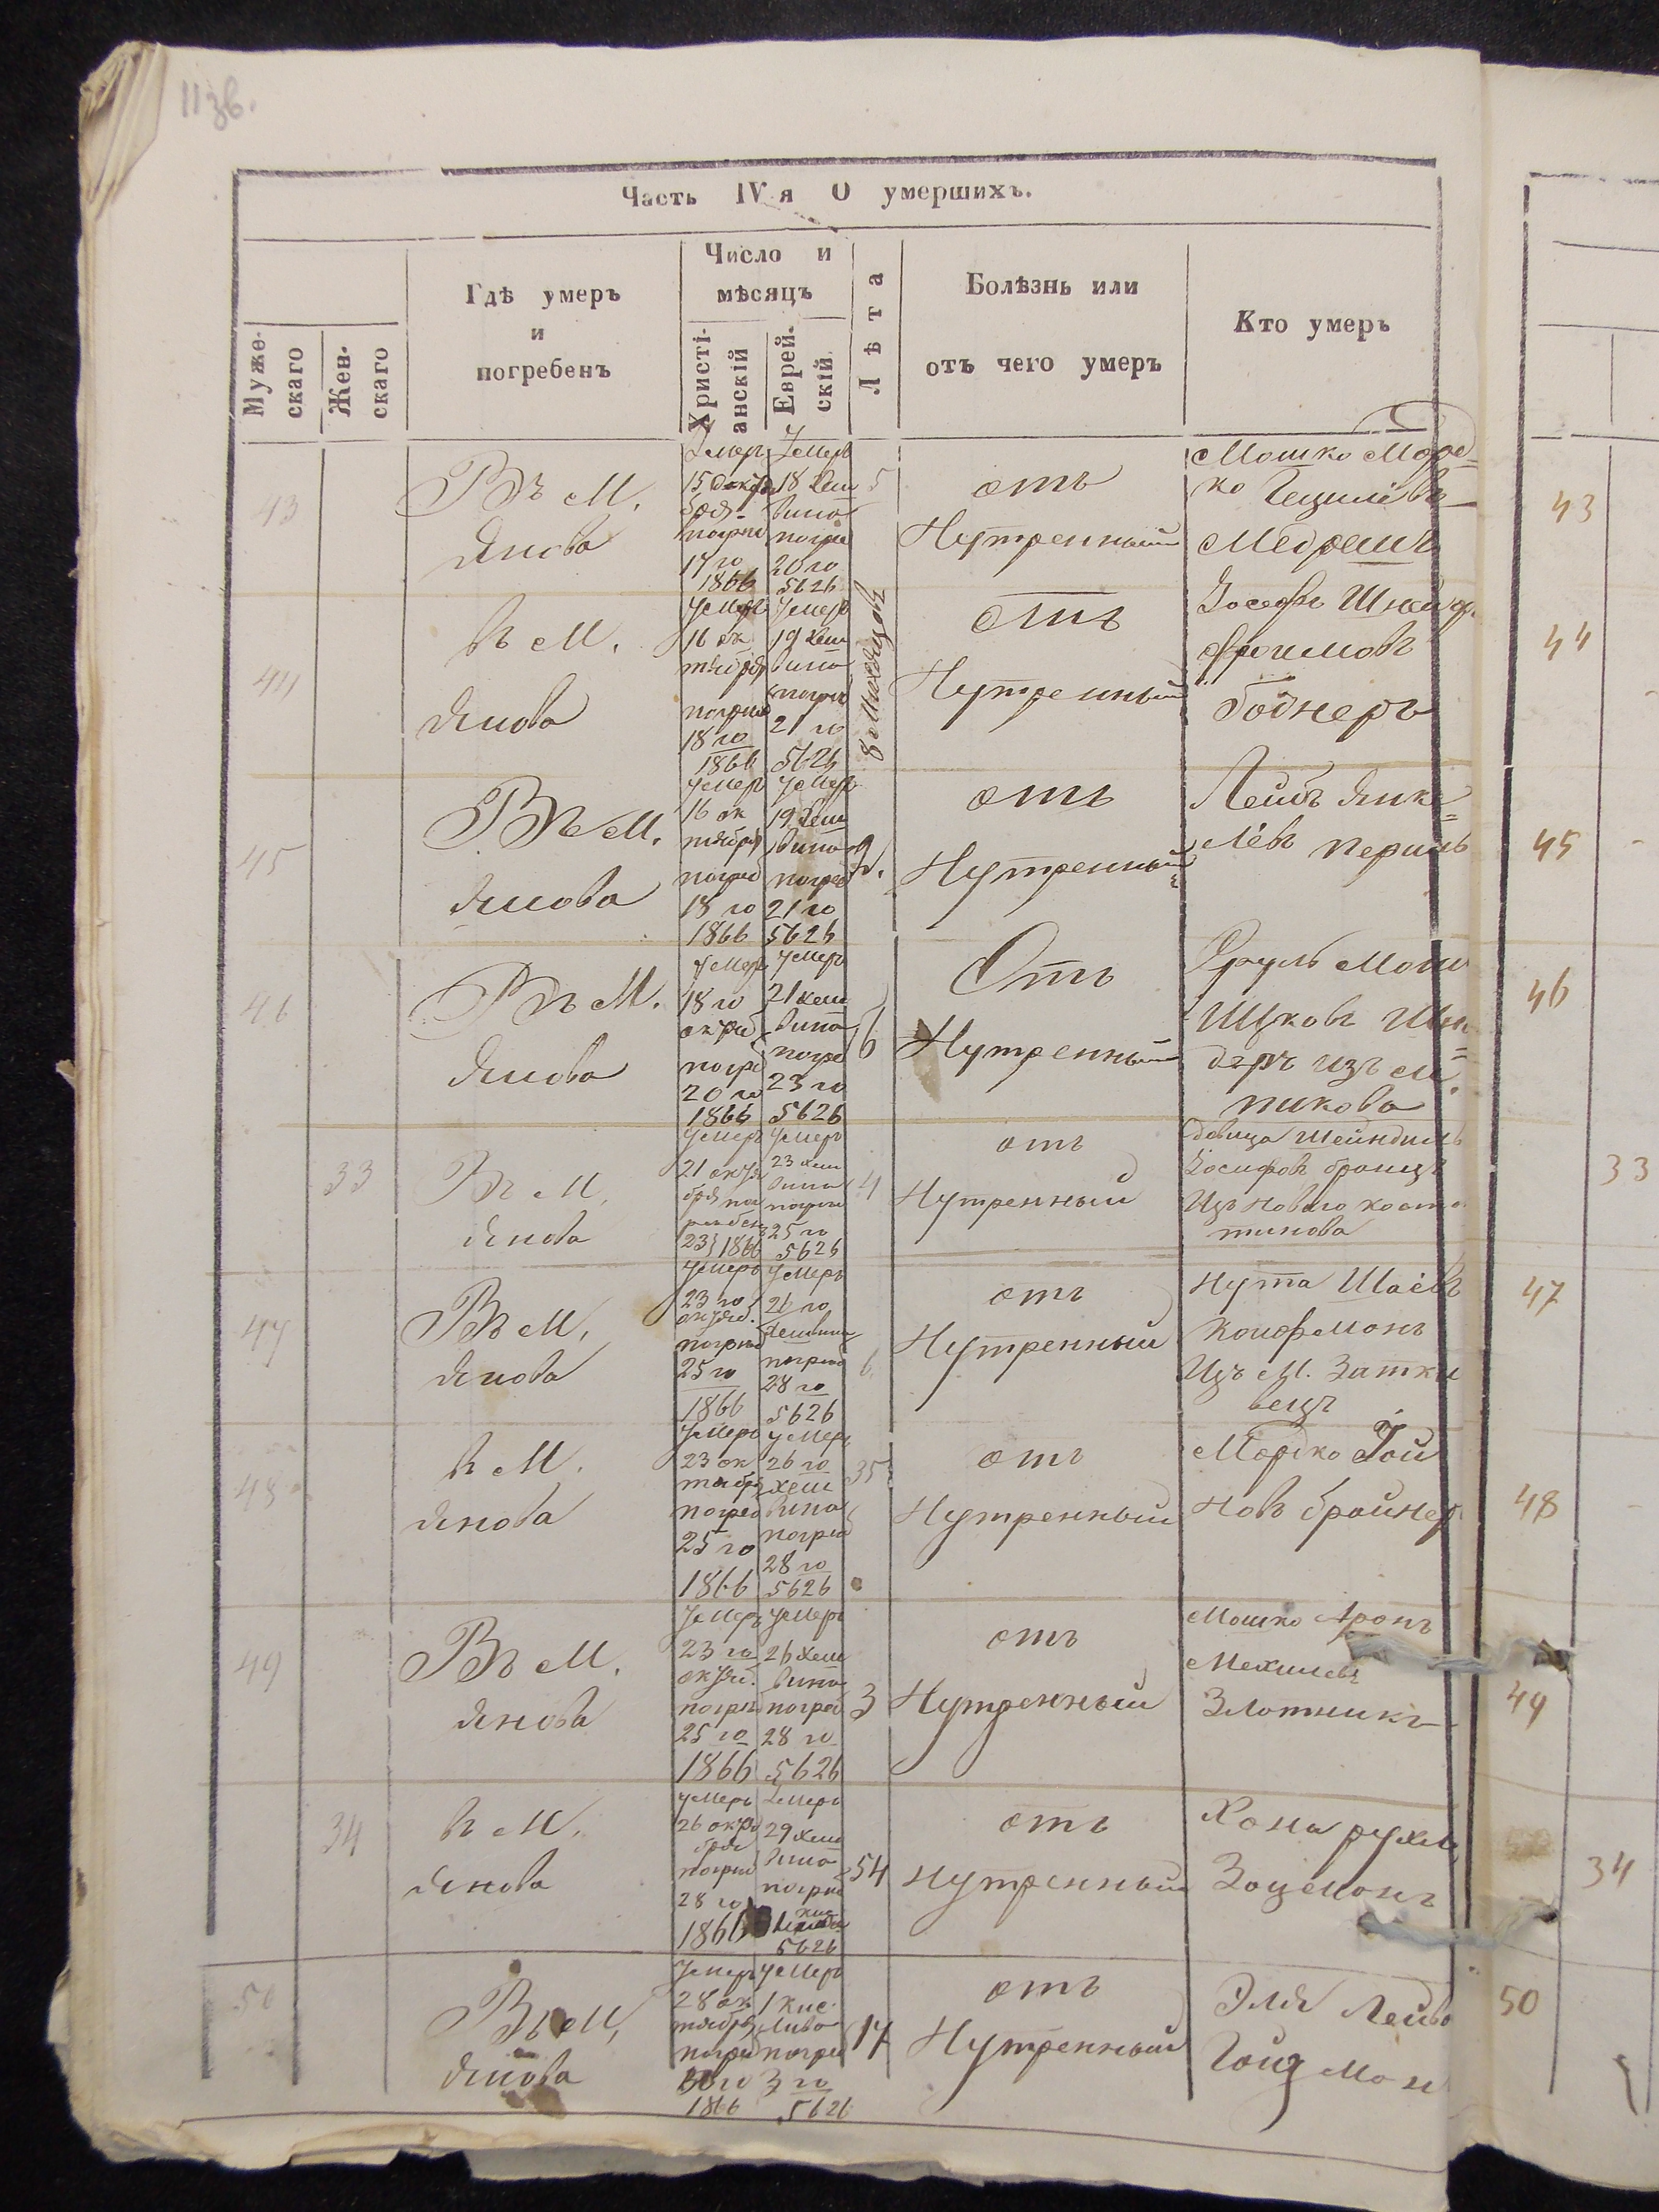 113в.
Часть IV я О умершихъ.
Муже-
скаго
Жен-
скаго
Гдѣ умеръ
и
погребенъ
Число и
мѣсяцъ
Христі-
анскій
Еврей-
скій
Лѣта
Болѣзнь или
отъ чего умеръ
Кто умеръ
43
Въ М.
Янова
Умеръ
15 октя
бря
погре
17 го
1866
Умеръ
18 Хеш
вина
погре
20 го
5626
5
отъ
Нутренный
Мошко Морд-
ко
43
44
въ М.
Янова
Умеръ
16 ок
тября
погреб
18 го
1866
Умеръ
19 Хеш
вина
погреб
21 го
5626
8 Мисяцовъ
отъ
Нутренный
Іосефъ
Фроимовъ
Боднеръ
44
45
Въ М.
Янова
Умеръ
16 ок
тября
погреб
18 го
1866
Умеръ
19 Хеш
вина
погреб
21 го
5626
отъ
Нутренный
Лейбъ Янке=
лёвъ
45
46
Въ М.
Янова
Умеръ
18 го
погре
20 го
1866
Умеръ
21 хеш
вина
погре
23 го
5626
6
Отъ
Нутренный
Сруль Мош
изъ М.
пикова
46
33
Въ М.
Янова
Умеръ
21 октя
бря по
гребен
23 1866
Умеръ
23 хеш
вина
погреб
25 го
5626
4
отъ
Нутренный
Девица Шейндиль
Іосифовъ
Изъ Нового конста
тинова
33
47
Въ М.
Янова
Умеръ
23 го
октяб.
погреб
25 го
1866
Умеръ
26 го
Хешвина
погреб
28 го
5626
6
отъ
Нутренный
Нута Шаёвъ
Койфмонъ
Изъ М. Затко
вецъ
47
48
въ М.
Янова
Умеръ
23 ок
тября
погреб
25 го
1866
Умеръ
26 го
хеш
вина
погреб
28 го
5626
35
отъ
Нутренный
Мордко Гой
новъ бройнер
48
49
Въ М.
Янова
Умеръ
23 го
октяб.
погреб
25 го
1866
Умеръ
26 хеш
вина
погреб
28 го
5626
3
отъ
Нутренный
Мошко Аронъ
Мехилевъ
Злотникъ
49
34
въ М.
Янова
Умеръ
26 октя
бря
погреб
28 го
1866
Умеръ
29 хеш
вина
погреб
5626
54
отъ
Нутренный
Хона рухля
34
50
Въ М.
Янова
Умеръ
28 ок
тября
погре
30 го
1866
Умеръ
1 кис
лива
погре
3 го
5626
17
отъ
Нутренный
Эля Лейбо
Гойзмон
50